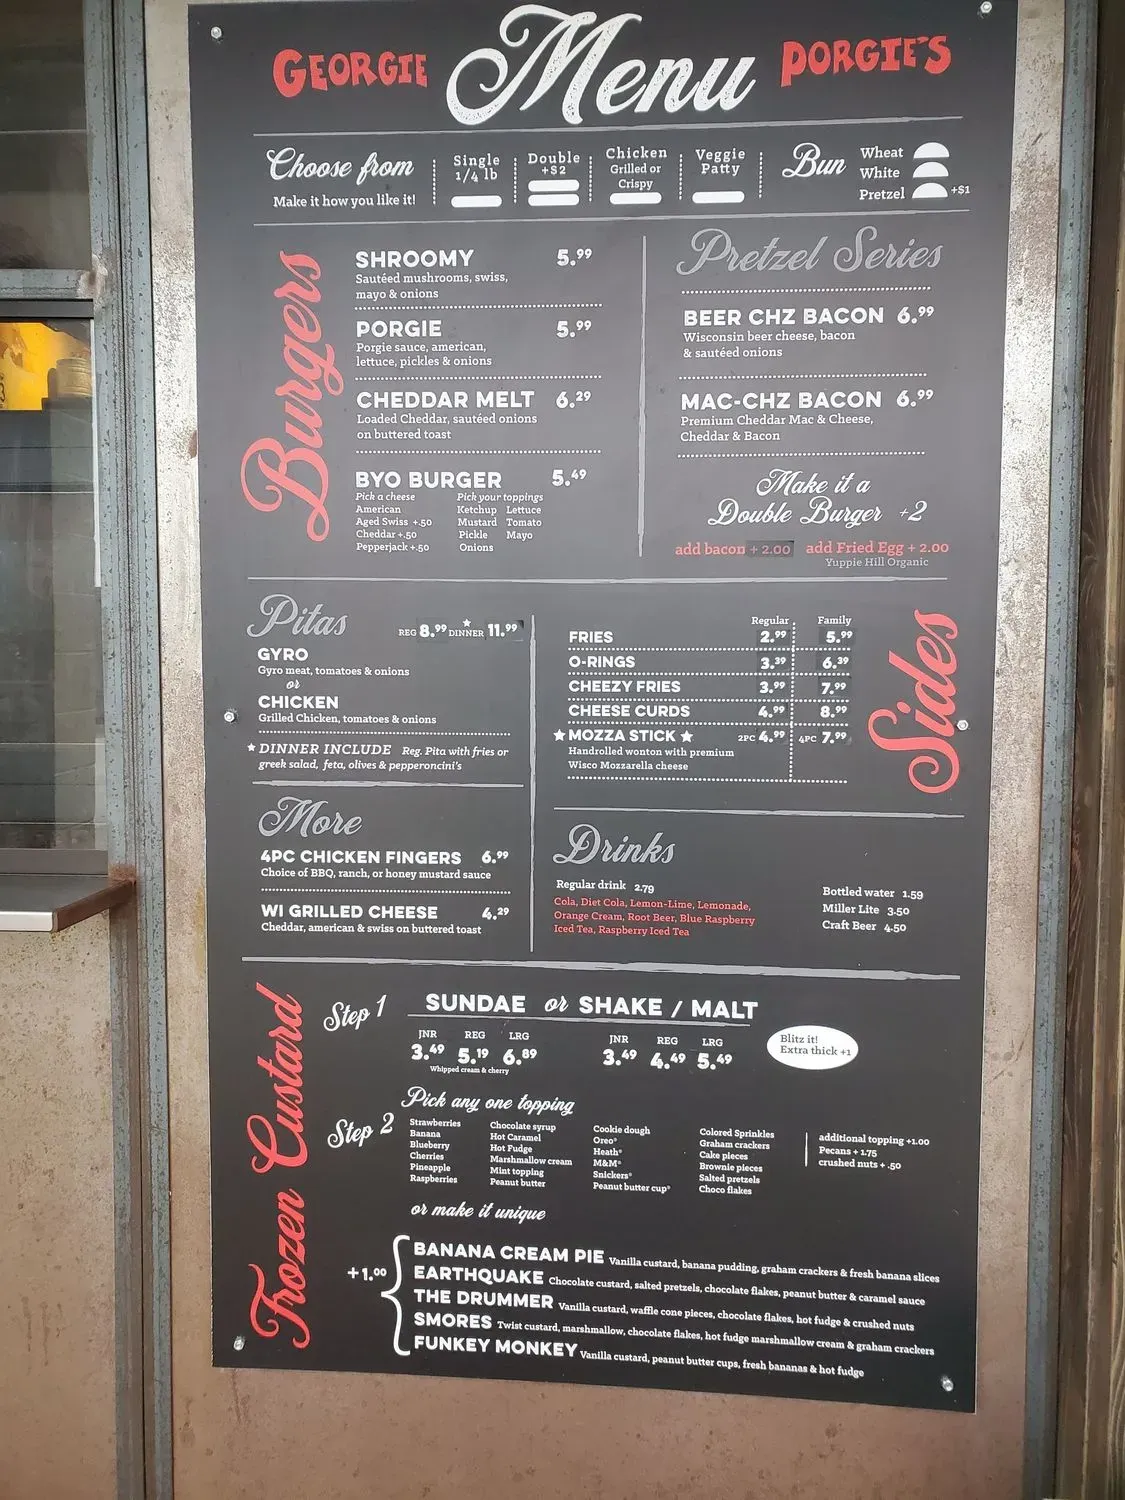 GEORGIE Menu PORGIE'S
Choose from
Make it how you like it!
Single
1/4 lb
Double
+$2
Chicken
Grilled or
Crispy
Veggie
Patty
Bun
Wheat
White
Pretzel +$1
Burgers
SHROOMY 5.99
Sautéed mushrooms, swiss,
mayo & onions
PORGIE 5.99
Porgie sauce, american,
lettuce, pickles & onions
CHEDDAR MELT 6.29
Loaded Cheddar, sautéed onions
on buttered toast
BYO BURGER 5.49
Pick a cheese
American
Aged Swiss +.50
Cheddar +.50
Pepperjack +.50
Pick your toppings
Ketchup Lettuce
Mustard Tomato
Pickle Mayo
Onions
Pretzel Series
BEER CHZ BACON 6.99
Wisconsin beer cheese, bacon
& sautéed onions
MAC-CHZ BACON 6.99
Premium Cheddar Mac & Cheese,
Cheddar & Bacon
Make it a
Double Burger +2
add bacon + 2.00 add Fried Egg + 2.00
Yuppie Hill Organic
Pitas
REG 8.99 DINNER 11.99
GYRO
Gyro meat, tomatoes & onions
or
CHICKEN
Grilled Chicken, tomatoes & onions
DINNER INCLUDE Reg. Pita with fries or
greek salad, feta, olives & pepperoncini's
More
4PC CHICKEN FINGERS 6.99
Choice of BBQ, ranch, or honey mustard sauce
WI GRILLED CHEESE 4.29
Cheddar, american & swiss on buttered toast
Sides
Regular Family
FRIES 2.99 5.99
O-RINGS 3.39 6.39
CHEEZY FRIES 3.99 7.99
CHEESE CURDS 4.99 8.99
MOZZA STICK 2PC 4.99 4PC 7.99
Handrolled wonton with premium
Wisco Mozzarella cheese
Drinks
Regular drink 2.79
Cola, Diet Cola, Lemon-Lime, Lemonade,
Orange Cream, Root Beer, Blue Raspberry
Iced Tea, Raspberry Iced Tea
Bottled water 1.59
Miller Lite 3.50
Craft Beer 4.50
Frozen Custard
Step 1
SUNDAE or SHAKE / MALT
JNR REG LRG
3.49 5.19 6.89
Whipped cream & cherry
JNR REG LRG
3.49 4.49 5.49
Blitz it!
Extra thick +1
Step 2
Pick any one topping
Strawberries
Banana
Blueberry
Cherries
Pineapple
Raspberries
Chocolate syrup
Hot Caramel
Hot Fudge
Marshmallow cream
Mint topping
Peanut butter
Cookie dough
Oreo®
Heath®
M&M®
Snickers®
Peanut butter cup®
Colored Sprinkles
Graham crackers
Cake pieces
Brownie pieces
Salted pretzels
Choco flakes
additional topping +1.00
Pecans + 1.75
crushed nuts + .50
or make it unique
+1.00
BANANA CREAM PIE Vanilla custard, banana pudding, graham crackers & fresh banana slices
EARTHQUAKE Chocolate custard, salted pretzels, chocolate flakes, peanut butter & caramel sauce
THE DRUMMER Vanilla custard, waffle cone pieces, chocolate flakes, hot fudge & crushed nuts
SMORES Twist custard, marshmallow, chocolate flakes, hot fudge marshmallow cream & graham crackers
FUNKEY MONKEY Vanilla custard, peanut butter cups, fresh bananas & hot fudge